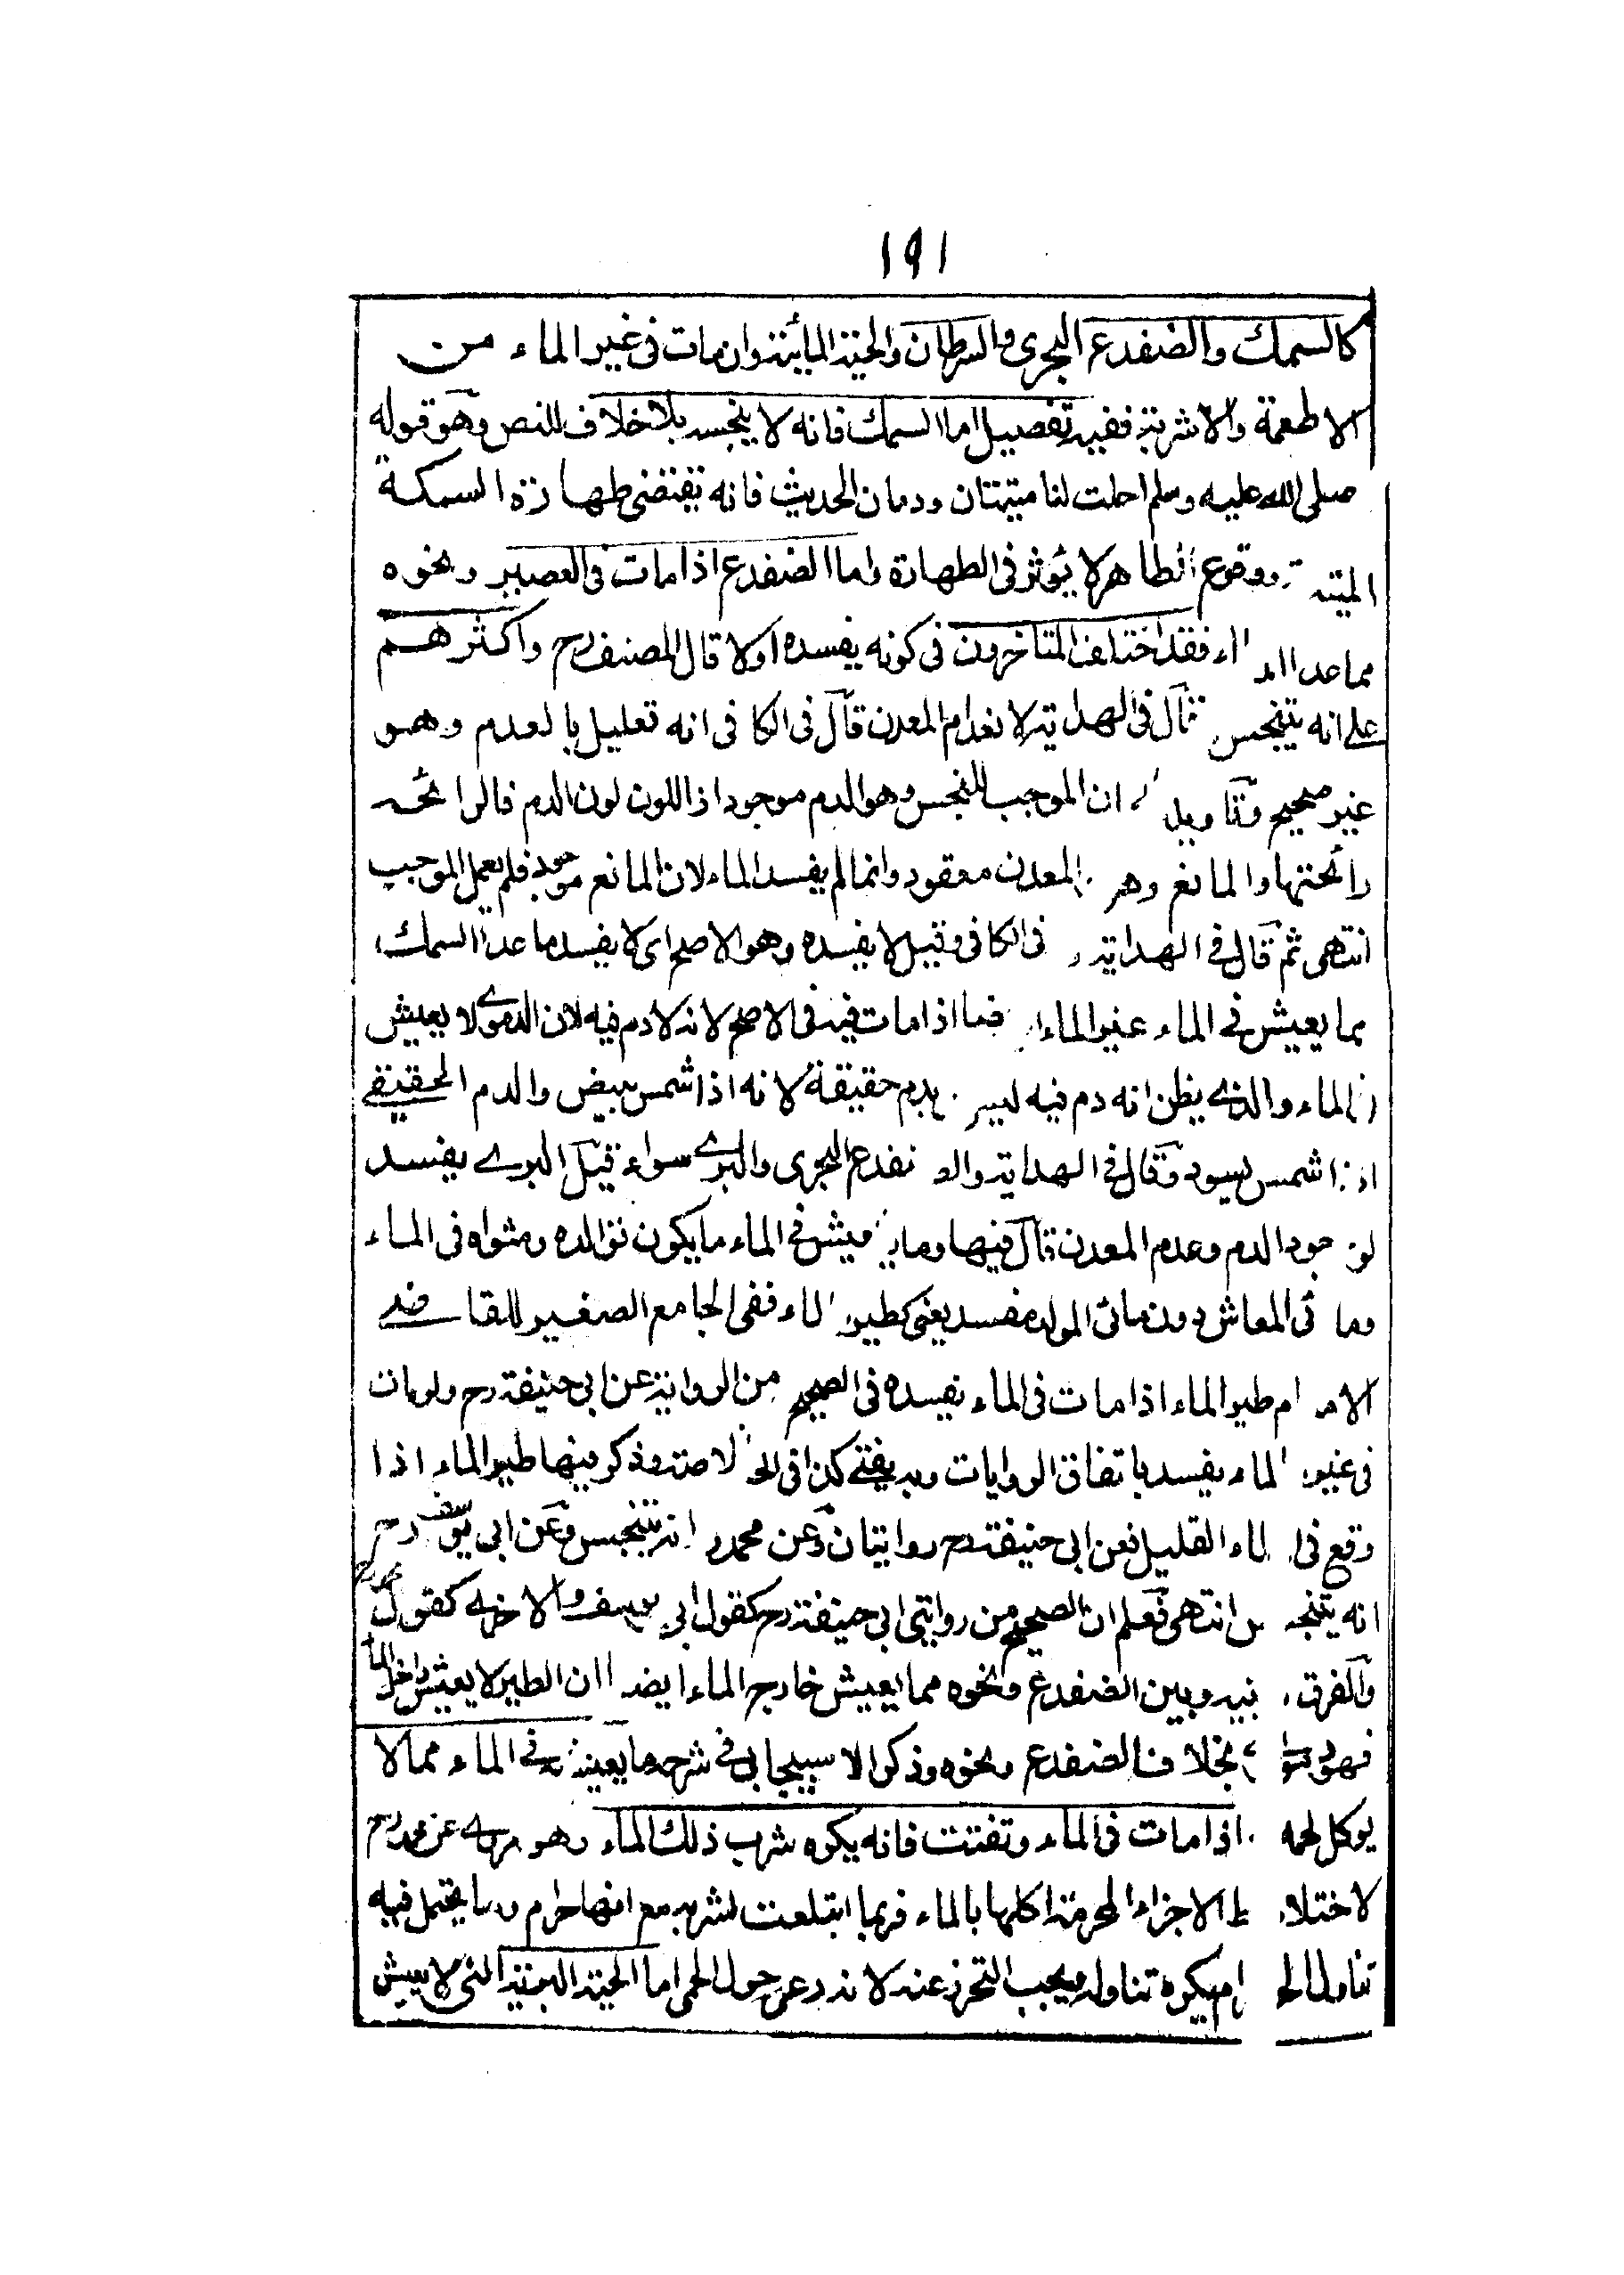 ١٩١
كالسمك والضفدع البحرى والسرطان والحية المائية وان مات فى غير الماء من
الاطعمة والاشربة ففيه تفصيل اما السمك فانه لا ينجسه بلا خلاف للنص وهو قوله
صلى الله عليه وسلم احلت لنا ميتتان ودمان الحديث فانه يقتضى طهارة السمكة
الميتة ووقوع الطاهر لا يؤثر فى الطهارة واما الضفدع اذا مات فى العصير ونحوه
مما عدا الماء فقد اختلف المتاخرون فى كونه يفسده اولا قال المصنف رح واكثرهم
على انه يتنجس قال فى الهداية لانعدام المعدن قال فى الكافى انه تعليل بالعدم وهو
غير صحيح وتاويله ان الموجب للتنجس وهو الدم موجود اذ اللون لون الدم فالرائحة
رائحتها والمانع وهو المعدن مفقود وانما لم يفسد الماء لان المانع موجود فلم يعمل الموجب
انتهى ثم قال فى الهداية و فى الكافى وقيل لا يفسده وهو الاصح اى لا يفسد ما عدا السمك
مما يعيش فى الماء غير الماء اذا مات فيه فى الاصح لانه لا دم فيه لان الدموى لا يعيش
فى الماء والذى يظن انه دم فيه ليس بدم حقيقة لانه اذا شمس يبيض والدم الحقيقى
اذا شمس يسود وقال فى الهداية والضفدع البحرى والبرى سواء قيل البرى يفسد
لوجود الدم وعدم المعدن قال فيها وما يعيش فى الماء ما يكون توالده ومثواه فى الماء
ومائى المعاش دون مائى المولد مفسد يعنى كطير الماء ففى الجامع الصغير للقاضى
الامام طير الماء اذا مات فى الماء يفسده فى الصحيح من الرواية عن ابى حنيفة رح ولو مات
فى غير الماء يفسد باتفاق الروايات وبه يفتى كذا فى الخلاصة وذكر فيها طير الماء اذا
وقع فى الماء القليل فعن ابى حنيفة رح روايتان وعن محمد رح انه يتنجس وعن ابى يوسف رح
انه يتنجس انتهى فعلم ان الصحيح من روايتى ابى حنيفة رح كقول ابى يوسف والاخرى كقول محمد رح
والفرق بينه وبين الضفدع ونحوه مما يعيش خارج الماء ايضا ان الطير لا يعيش داخل الماء
فهو بخلاف الضفدع ونحوه وذكر الاسبيجابى فى شرحه ما يعيش فى الماء مما لا
يوكل لحمه اذا مات فى الماء وتفتت فانه يكره شرب ذلك الماء وهو مروى عن محمد رح
لاختلاط الاجزاء المحرمة اكلها بالماء فربما ابتلعت لشربه مع انها حرام وما يحتمل فيه
تناول الحرام يكره تناوله ويجب التحرز عنه لانه رعى حول الحمى اما الحية البرية التى لا يعيش